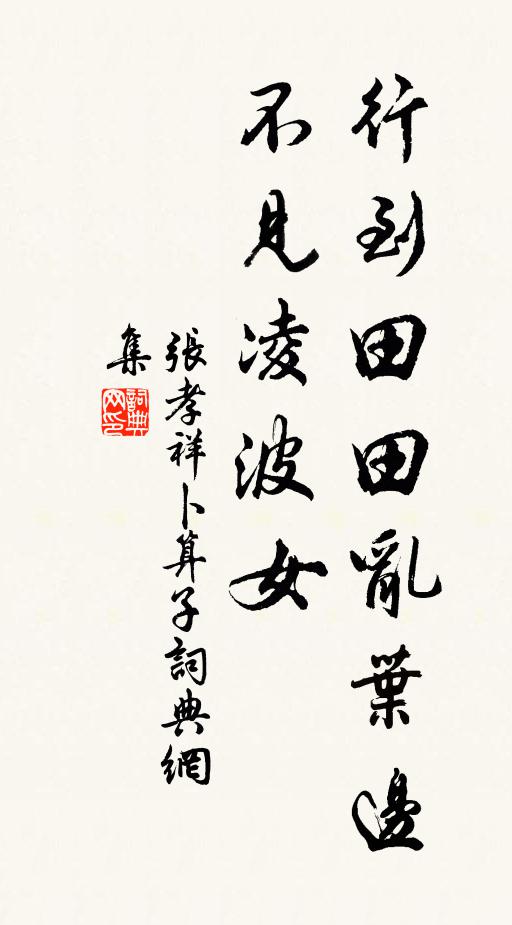 行到田田亂葉邊
不見凌波女
張孝祥卜算子詞典網
集
詞典
网印